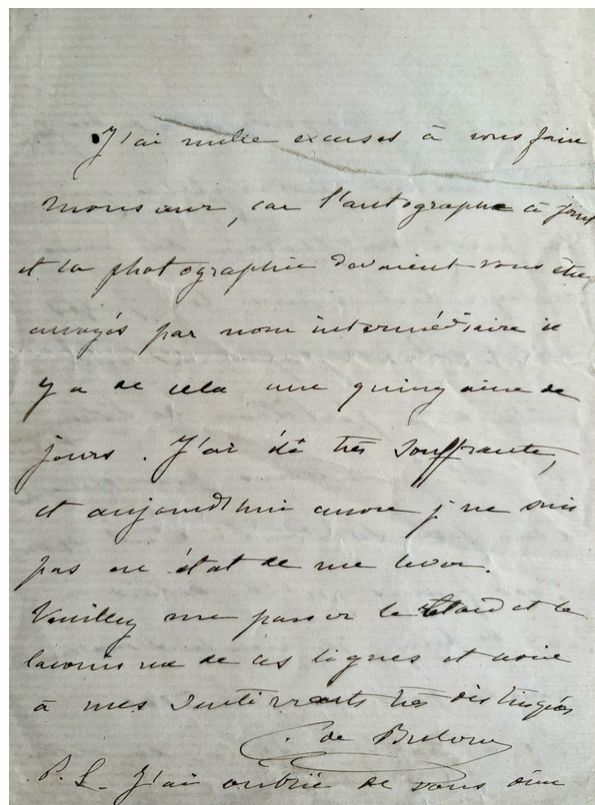 J'ai mille excuses à vous faire
monsieur, car l'autographe ci joint
et la photographie devaient vous être
envoyés par mon intermédiaire il
y a de cela une quinzaine de
jours. J'ai été très souffrante,
et aujourd'hui encore je ne suis
pas en état de me lever.
Veuillez me passer le retard et le
laconisme de ces lignes et croire
à mes sentiments très distingués
de
P.S. J'ai oublié de vous dire